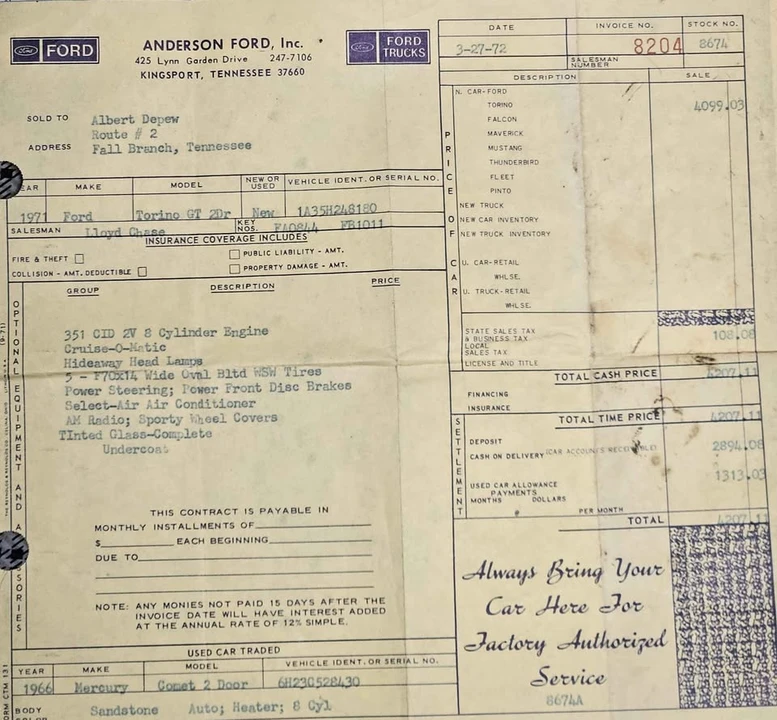 Ford FORD
ANDERSON FORD, Inc.
425 Lynn Garden Drive 247-7106
KINGSPORT, TENNESSEE 37660
Ford FORD TRUCKS
DATE INVOICE NO. STOCK NO.
3-27-72 8204 8674
SALESMAN NUMBER
SOLD TO Albert Depew
Route # 2
ADDRESS Fall Branch, Tennessee
EAR MAKE MODEL NEW OR USED VEHICLE IDENT. OR SERIAL NO.
1971 Ford Torino GT 2Dr New 1A35H248180
SALESMAN Lloyd Chase KEY NOS. FA0844 FB1011
INSURANCE COVERAGE INCLUDES
FIRE & THEFT PUBLIC LIABILITY - AMT.
COLLISION - AMT. DEDUCTIBLE PROPERTY DAMAGE - AMT.
GROUP DESCRIPTION PRICE
OPTIONAL EQUIPMENT AND A SORIES
351 CID 2V 8 Cylinder Engine
Cruise-O-Matic
Hideaway Head Lamps
5 - F70x14 Wide Oval Bltd WSW Tires
Power Steering; Power Front Disc Brakes
Select-Air Air Conditioner
AM Radio; Sporty Wheel Covers
TInted Glass-Complete
Undercoat
THIS CONTRACT IS PAYABLE IN
MONTHLY INSTALLMENTS OF
$ EACH BEGINNING
DUE TO
NOTE: ANY MONIES NOT PAID 15 DAYS AFTER THE
INVOICE DATE WILL HAVE INTEREST ADDED
AT THE ANNUAL RATE OF 12% SIMPLE.
USED CAR TRADED
YEAR MAKE MODEL VEHICLE IDENT. OR SERIAL NO.
1966 Mercury Comet 2 Door 6H230528430
BODY Sandstone Auto; Heater; 8 Cyl
DESCRIPTION SALE
PRICE OF CAR
N. CAR-FORD
TORINO 4099.03
FALCON
MAVERICK
MUSTANG
THUNDERBIRD
FLEET
PINTO
NEW TRUCK
NEW CAR INVENTORY
NEW TRUCK INVENTORY
U. CAR-RETAIL
WHLSE.
U. TRUCK-RETAIL
WHLSE.
STATE SALES TAX
& BUSINESS TAX 108.08
LOCAL
SALES TAX
LICENSE AND TITLE
TOTAL CASH PRICE 4207.11
FINANCING
INSURANCE
TOTAL TIME PRICE 4207.11
SETTLEMENT
DEPOSIT
CASH ON DELIVERY (CAR ACCOUNTS RECEIVABLE) 2894.08
USED CAR ALLOWANCE 1313.03
PAYMENTS
MONTHS DOLLARS
PER MONTH
TOTAL 4207.11
Always Bring Your
Car Here For
Factory Authorized
Service
8674A